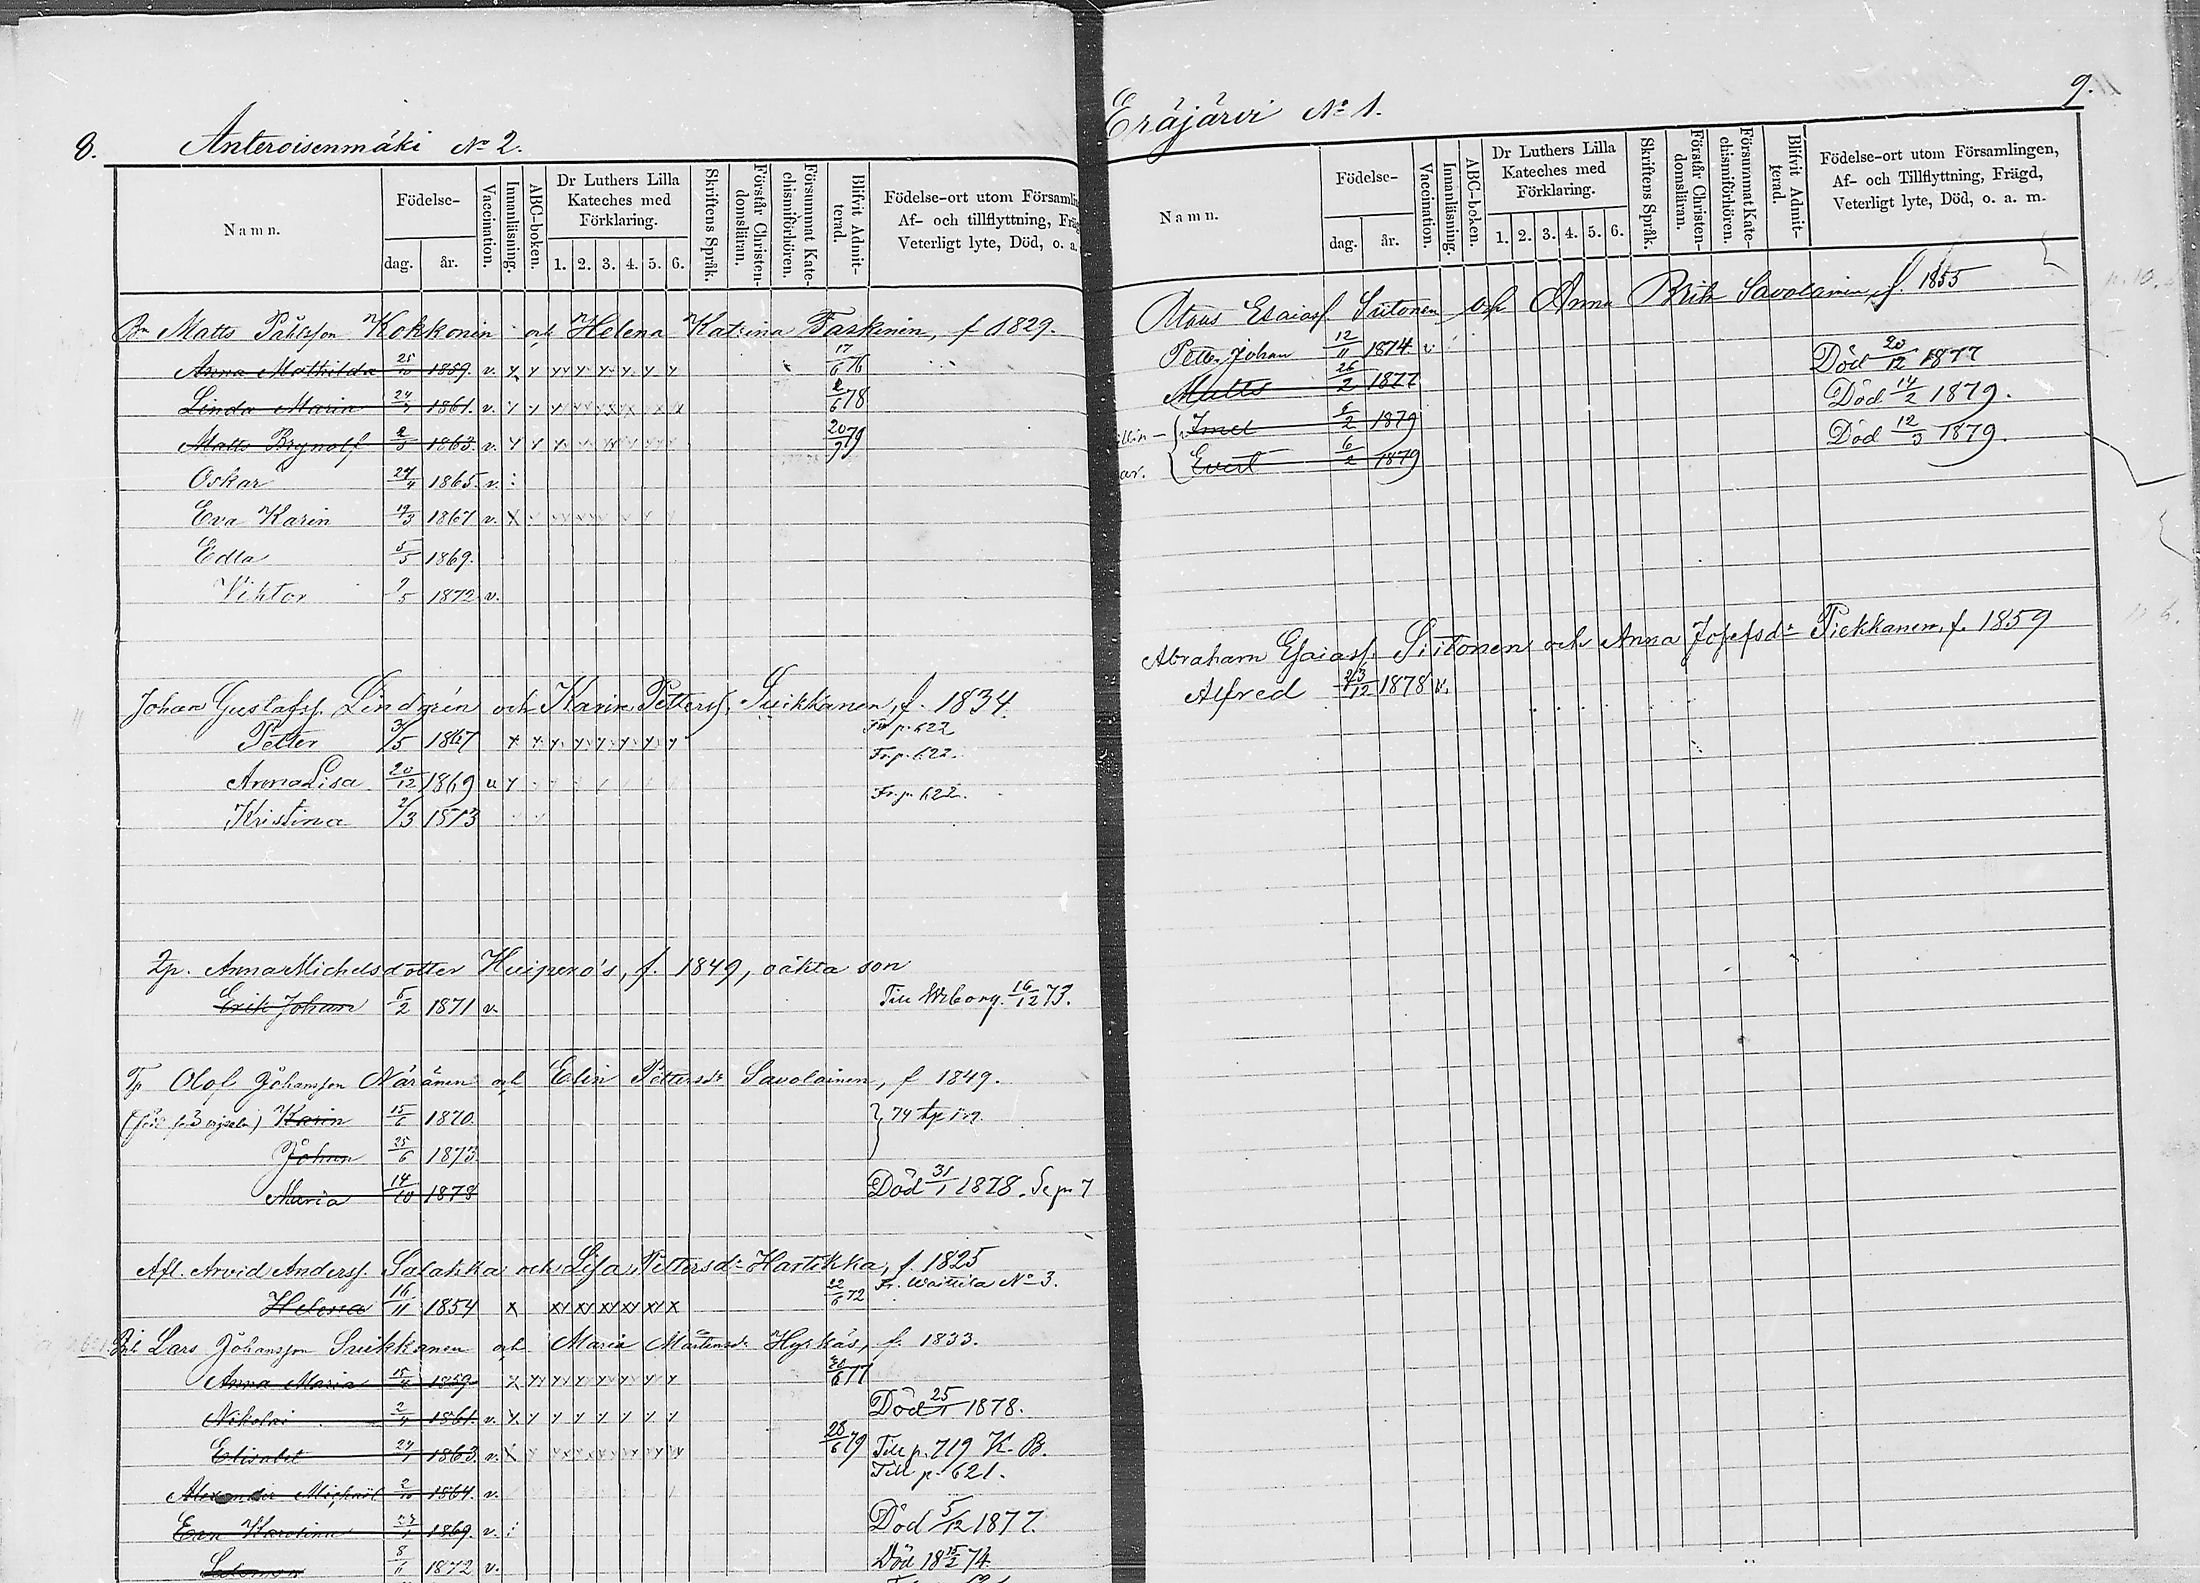 8. Anteroisenmäki No 2.
Namn.
Födelse-
dag. år.
Vaccination.
Innanläsning.
ABC-boken.
Dr Luthers Lilla Kateches med Förklaring.
1. 2. 3. 4. 5. 6.
Skriftens Språk.
Förstår Christendomsläran.
Försummat Katechismiförhören.
Blifvit Admitterad.
Födelse-ort utom Församlin
Af- och tillflyttning, Fräg
Veterligt lyte, Död, o. a.
Matts Påhlsson Kokkonin och Helena Katrina Taskinen, f 1829.
Anna Mathilda 1859 v. 17/6 76
Linda Maria 1861. v. 2/6 78
Matts Brynolf 1863. v. 20/9 79
Oskar 24/4 1865. v.
Eva Karin 19/3 1867 v.
Edla 5/5 1869.
Viktor 9/5 1872 v.
Johan Gustafss. Lindgrén och Karin Petters. Suikkanen, f. 1834.
Petter 3/5 1867 Fr. p. 622
Anna Lisa 20/12 1869 Fr. p. 622.
Kristina 2/3 1873 Fr. p. 622.
Anna Michelsdotter Huiperö's, f. 1849, oäkta son
Erik Johan 5/2 1871 v. Till Wiborg. 16/12 73.
Olof Johansson Näränen och Elin Pettersdr Savolainen, f 1849.
Karin 15/6 1870.
Johan 25/6 1873
Maria 14/10 1878 Död 31/1 1878. Se p. 7
Afl. Arvid Anderss. Salakka och Lisa Pettersdr Hartikka, f. 1825
Helena 16/11 1854 x 22/6 72 Fr. Waittila No 3.
Lars Johansson Suikkanen och Maria Mårtensdr Hyrkäs, f. 1833.
Anna Maria 1859 77
Nikolai 1861. v. Död 25/1 1878.
Elisabet 1863. v. 28/6 79 Till p. 719 K. B.
Alexander Michael 1864. v. Till p. 621.
Eva Karolina 1869. v. Död 5/12 1877.
Salomon 1872 v. Död 18 15/2 74.
Eräjärvi No 1. 9.
Namn.
Födelse-
dag. år.
Vaccination.
Innanläsning.
ABC-boken.
Dr Luthers Lilla Kateches med Förklaring.
1. 2. 3. 4. 5. 6.
Skriftens Språk.
Förstår Christendomsläran.
Försummat Katechismiförhören.
Blifvit Admitterad.
Födelse-ort utom Församlingen,
Af- och Tillflyttning, Frägd,
Veterligt lyte, Död, o. a. m.
Esaiass. Siitonen och Anna Brita Savolainen, f. 1855
Petter Johan 12/11 1874. v
Matts 26/2 1877 Död 20/12 1877
6/2 1879 Död 14/2 1879.
Evert 6/2 1879 Död 12/3 1879.
Abraham Esaiass. Siitonen och Anna Josefsdr Piekkanen, f. 1859
Alfred 23/12 1878 v.